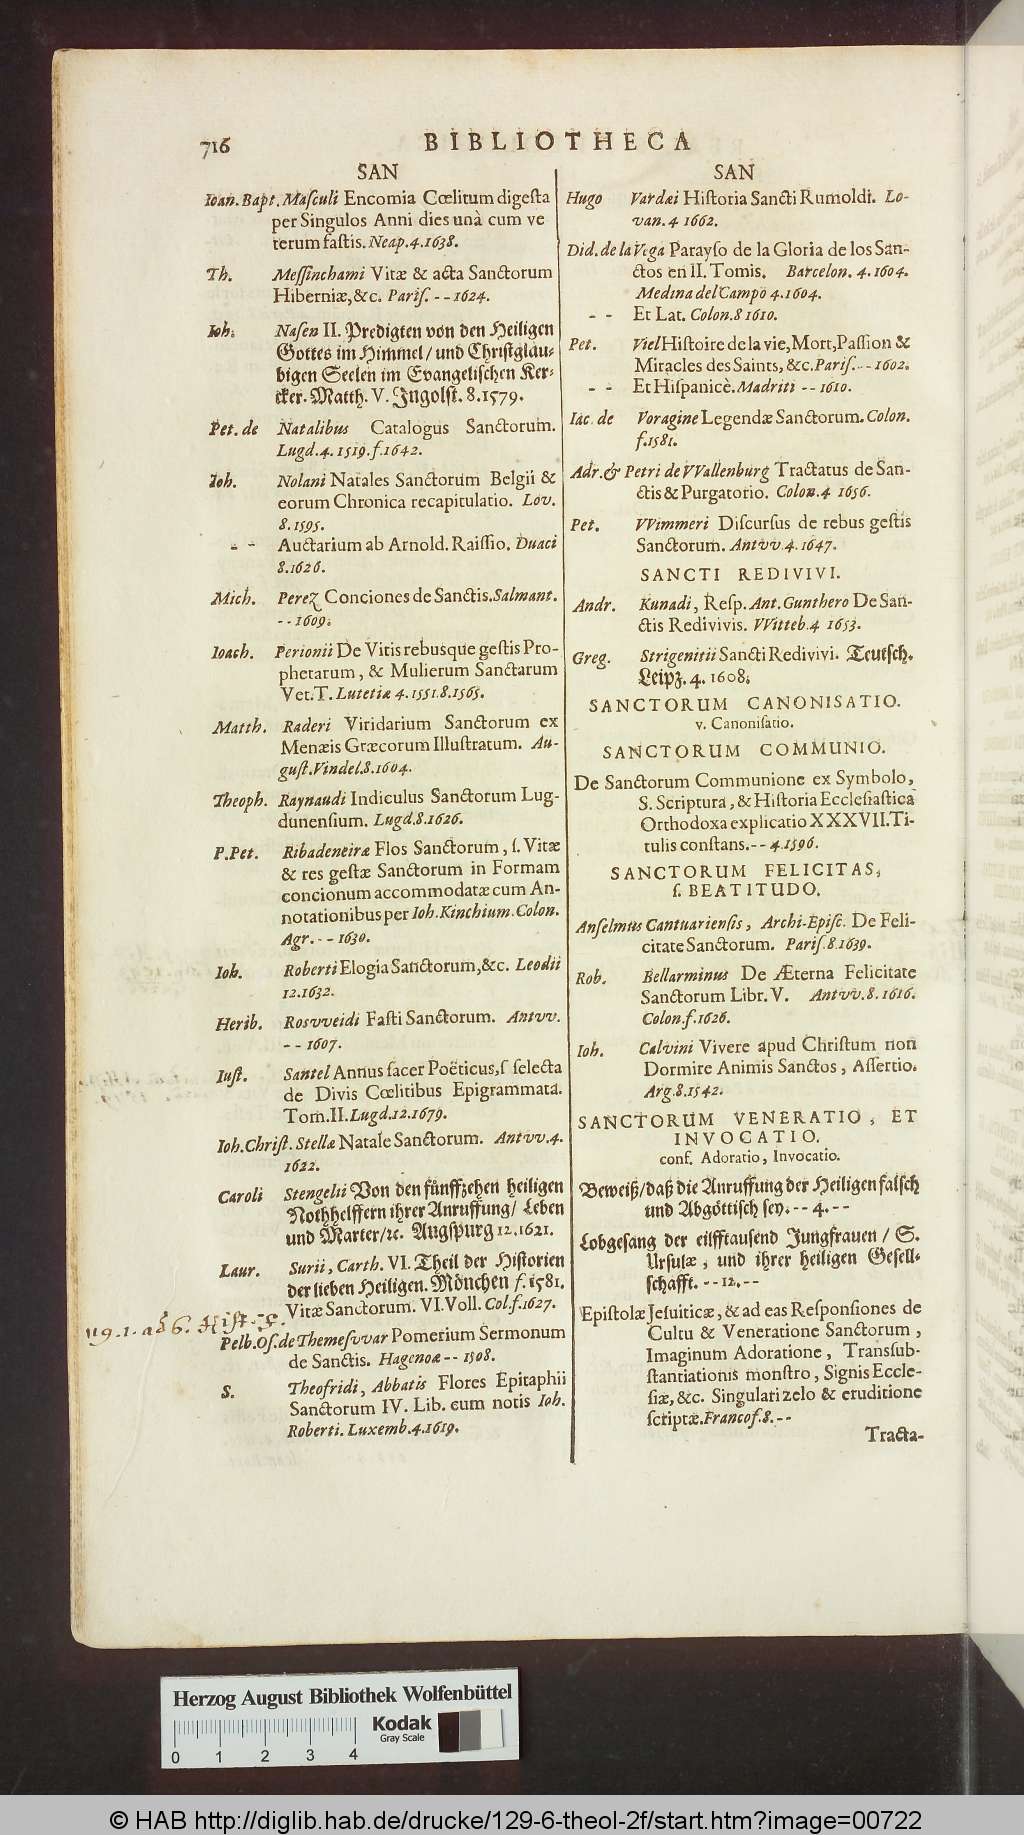 716
BIBLIOTHECA
SAN
Ioan. Bapt. Masculi Encomia Cœlitum digesta
per Singulos Anni dies unà cum ve
terum fastis. Neap. 4. 1638.
Th. Messinchami Vitæ & acta Sanctorum
Hiberniæ, &c. Paris. - - 1624.
Ioh. Nasen II. Predigten von den Heiligen
Gottes im Himmel / und Christgläu-
bigen Seelen im Evangelischen Ker-
cker. Matth. V. Ingolst. 8. 1579.
Pet. de Natalibus Catalogus Sanctorum.
Lugd. 4. 1519. f. 1642.
Ioh. Nolani Natales Sanctorum Belgii &
eorum Chronica recapitulatio. Lov.
8. 1595.
- - Auctarium ab Arnold. Raissio. Duaci
8. 1626.
Mich. Perez Conciones de Sanctis. Salmant.
- - 1609.
Ioach. Perionii De Vitis rebusque gestis Pro-
phetarum, & Mulierum Sanctarum
Vet. T. Lutetiæ 4. 1551. 8. 1565.
Matth. Raderi Viridarium Sanctorum ex
Menæis Græcorum Illustratum. Au-
gust. Vindel. 8. 1604.
Theoph. Raynaudi Indiculus Sanctorum Lug-
dunensium. Lugd. 8. 1626.
P. Pet. Ribadeneiræ Flos Sanctorum, s. Vitæ
& res gestæ Sanctorum in Formam
concionum accommodatæ cum An-
notationibus per Ioh. Kinchium. Colon.
Agr. - - 1630.
Ioh. Roberti Elogia Sanctorum, &c. Leodii
12. 1632.
Herib. Rosvveidi Fasti Sanctorum. Antvv.
- - 1607.
Iust. Santel Annus sacer Poëticus, s selecta
de Divis Cœlitibus Epigrammata.
Tom. II. Lugd. 12. 1679.
Ioh. Christ. Stellæ Natale Sanctorum. Antvv. 4.
1622.
Caroli Stengelii Von den fünffzehen heiligen
Nothhelffern ihrer Anruffung / Leben
und Marter / ꝛc. Augspurg 12. 1621.
Laur. Surii, Carth. VI. Theil der Historien
der lieben Heiligen. Mönchen f. 1581.
Vitæ Sanctorum. VI. Voll. Col. f. 1627.
119. 1. ad 6. Hist.
Pelb. Os. de Themesvvar Pomerium Sermonum
de Sanctis. Hagenoæ - - 1508.
S. Theofridi, Abbatis Flores Epitaphii
Sanctorum IV. Lib. cum notis Ioh.
Roberti. Luxemb. 4. 1619.
SAN
Hugo Vardæi Historia Sancti Rumoldi. Lo-
van. 4 1662.
Did. de la Vega Parayso de la Gloria de los San-
ctos en II. Tomis. Barcelon. 4. 1604.
Medina del Campo 4. 1604.
- - Et Lat. Colon. 8 1610.
Pet. Viel Histoire de la vie, Mort, Passion &
Miracles des Saints, &c. Paris. - - 1602.
- - Et Hispanicè. Madriti - - 1610.
Iac. de Voragine Legendæ Sanctorum. Colon.
f. 1581.
Adr. & Petri de VVallenburg Tractatus de San-
ctis & Purgatorio. Colon. 4 1656.
Pet. VVimmeri Discursus de rebus gestis
Sanctorum. Antvv. 4. 1647.
SANCTI REDIVIVI.
Andr. Kunadi, Resp. Ant. Gunthero De San-
ctis Redivivis. VVitteb. 4 1653.
Greg. Strigenitii Sancti Redivivi. Teutsch.
Leipz. 4. 1608.
SANCTORUM CANONISATIO.
v. Canonisatio.
SANCTORUM COMMUNIO.
De Sanctorum Communione ex Symbolo,
S. Scriptura, & Historia Ecclesiastica
Orthodoxa explicatio XXXVII. Ti-
tulis constans. - - 4. 1596.
SANCTORUM FELICITAS,
s. BEATITUDO.
Anselmus Cantuariensis, Archi-Episc. De Feli-
citate Sanctorum. Paris. 8. 1639.
Rob. Bellarminus De Æterna Felicitate
Sanctorum Libr. V. Antvv. 8. 1616.
Colon. f. 1626.
Ioh. Calvini Vivere apud Christum non
Dormire Animis Sanctos, Assertio.
Arg. 8. 1542.
SANCTORUM VENERATIO, ET
INVOCATIO.
conf. Adoratio, Invocatio.
Beweiß / daß die Anruffung der Heiligen falsch
und Abgöttisch sey. - - 4. - -
Lobgesang der eilfftausend Jungfrauen / S.
Ursulæ, und ihrer heiligen Gesell-
schafft. - - 12. - -
Epistolæ Jesuiticæ, & ad eas Responsiones de
Cultu & Veneratione Sanctorum,
Imaginum Adoratione, Transsub-
stantiationis monstro, Signis Eccle-
siæ, &c. Singulari zelo & eruditione
scriptæ. Francof. 8. - -
Tracta-
Herzog August Bibliothek Wolfenbüttel
Kodak
Gray Scale
0 1 2 3 4
© HAB http://diglib.hab.de/drucke/129-6-theol-2f/start.htm?image=00722